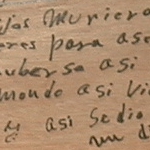 jos Muriero
ores para ase
uberse asi
monde asi Vi
y asi Sedio
un di